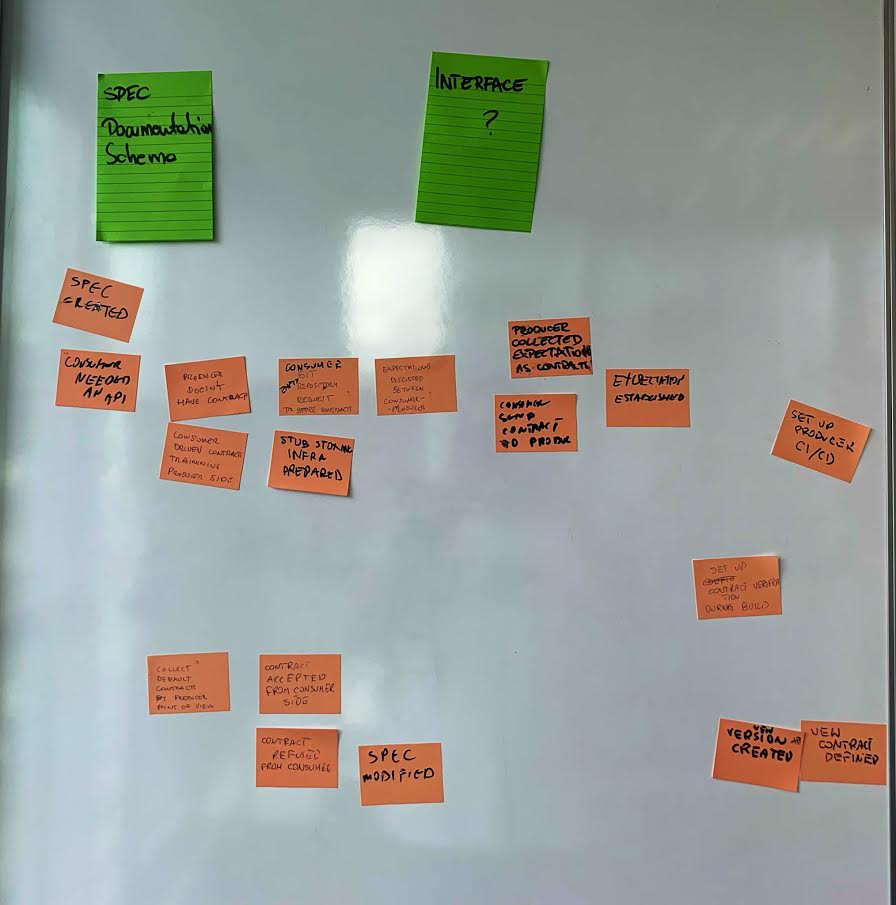 SPEC
Documentation
Schema
INTERFACE
?
SPEC
CREATED
"CONSUMER
NEEDED
AN API
PRODUCER
DOESN'T
HAVE CONTRACT
CONSUMER
GIT
REPOSITORY
REQUEST
TO STORE CONTRACTS
EXPECTATIONS
DISCUSSED
BETWEEN
CONSUMER-
PRODUCER
PRODUCER
COLLECTED
EXPECTATION
AS CONTRACTS
EXPECTATION
ESTABLISHED
CONSUMER
SEND
CONTRACT
TO PRODUC
SET UP
PRODUCER
CI/CD
CONSUMER
DRIVEN CONTRACT
TRAINING
PRODUCER SIDE
STUB STORING
INFRA
PREPARED
SET UP
CONTRACT VERIFICA
TION
DURING BUILD
COLLECT
DEFAULT
CONTRACTS
BY PRODUCER
POINT OF VIEW
CONTRACT
ACCEPTED
FROM CONSUMER
SIDE
CONTRACT
REFUSED
FROM CONSUMER
SPEC
MODIFIED
NEW
VERSION API
CREATED
NEW
CONTRACT
DEFINED